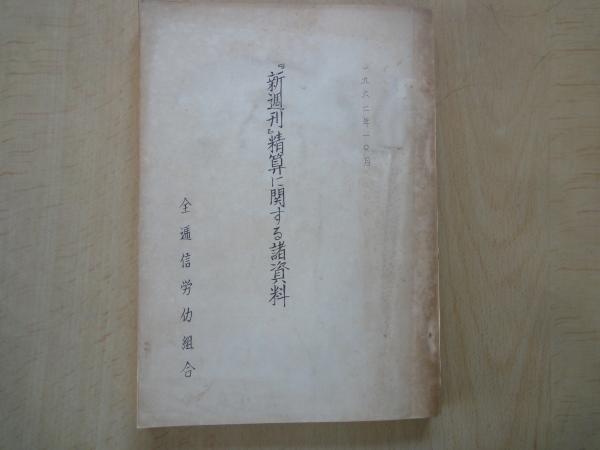 一九六二年一〇月
『新週刊』精算に関する諸資料
全逓信労仂組合